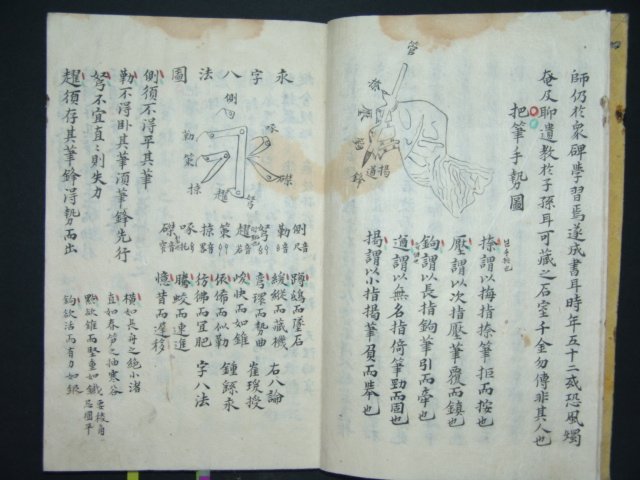 師仍於衆碑學習焉遂成書耳時年五十二或恐風燭
奄及聊遺教於子孫耳可藏之石室千金勿傳非其人也
把筆手勢圖
管
壓
鋒
揭
道
捺謂以拇指捺筆拒而按也
壓謂以次指壓筆覆而鎮也
鉤謂以長指鉤筆引而牽也
道謂以無名指倚筆勁而固也
揭謂以小指揭筆負而舉也
永字八法圖
側
勒
策
掠
趯
努
啄
磔
側
勒音
努
趯音
策
掠音
啄音
磔音
蹲鴟而墜石
緩縱而藏機
彎環而勢曲
峻快而如錐
依俙而似勒
彷彿而宜肥
騰蛟而連進
憶昔而
右八論
崔瑗授
鍾繇永
字八法
側須不得平其筆
勒不得卧其筆須筆鋒先行
努不宜直直則失力
趯須存其筆鋒得勢而出
橫如長舟之絕小渚
直如春笋之抽寒谷
點欲錐而堅重如鐵
鉤欲活而有力如銀